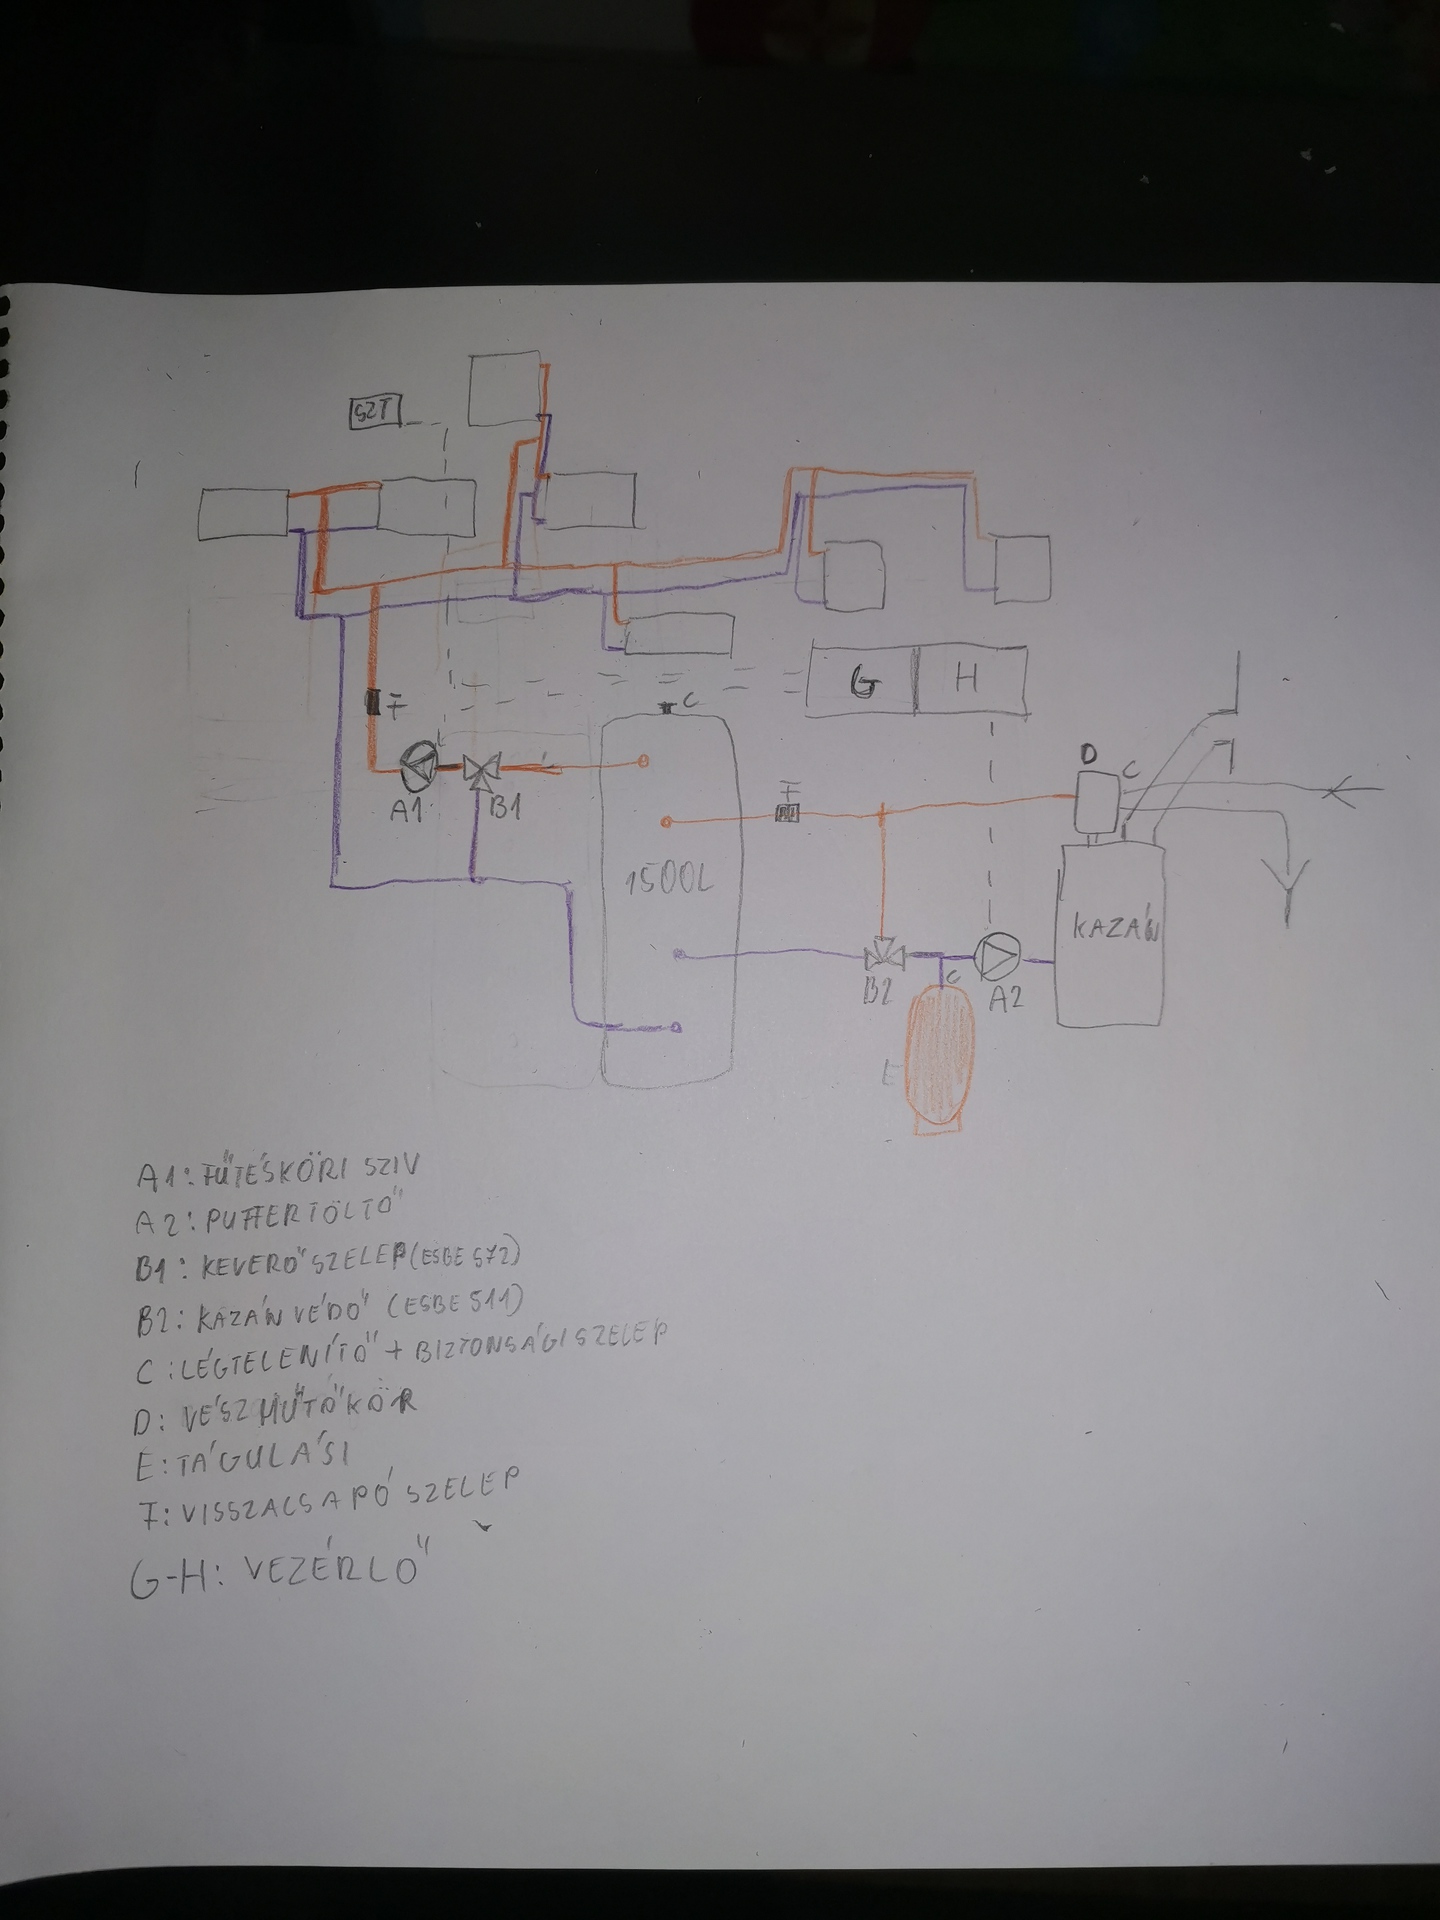 SZT
G H
F
C
D
C
A1 B1
F
1500L
KAZÁN
B2
C
A2
E
A1: FŰTÉSKÖRI SZIV
A2: PUFFERTÖLTŐ
B1: KEVERŐ SZELEP (ESBE 572)
B2: KAZÁN VÉDŐ (ESBE 511)
C: LÉGTELENÍTŐ + BIZTONSÁGI SZELEP
D: VÉSZ HŰTŐKÖR
E: TÁGULÁSI
F: VISSZACSAPÓ SZELEP
G-H: VEZÉRLŐ